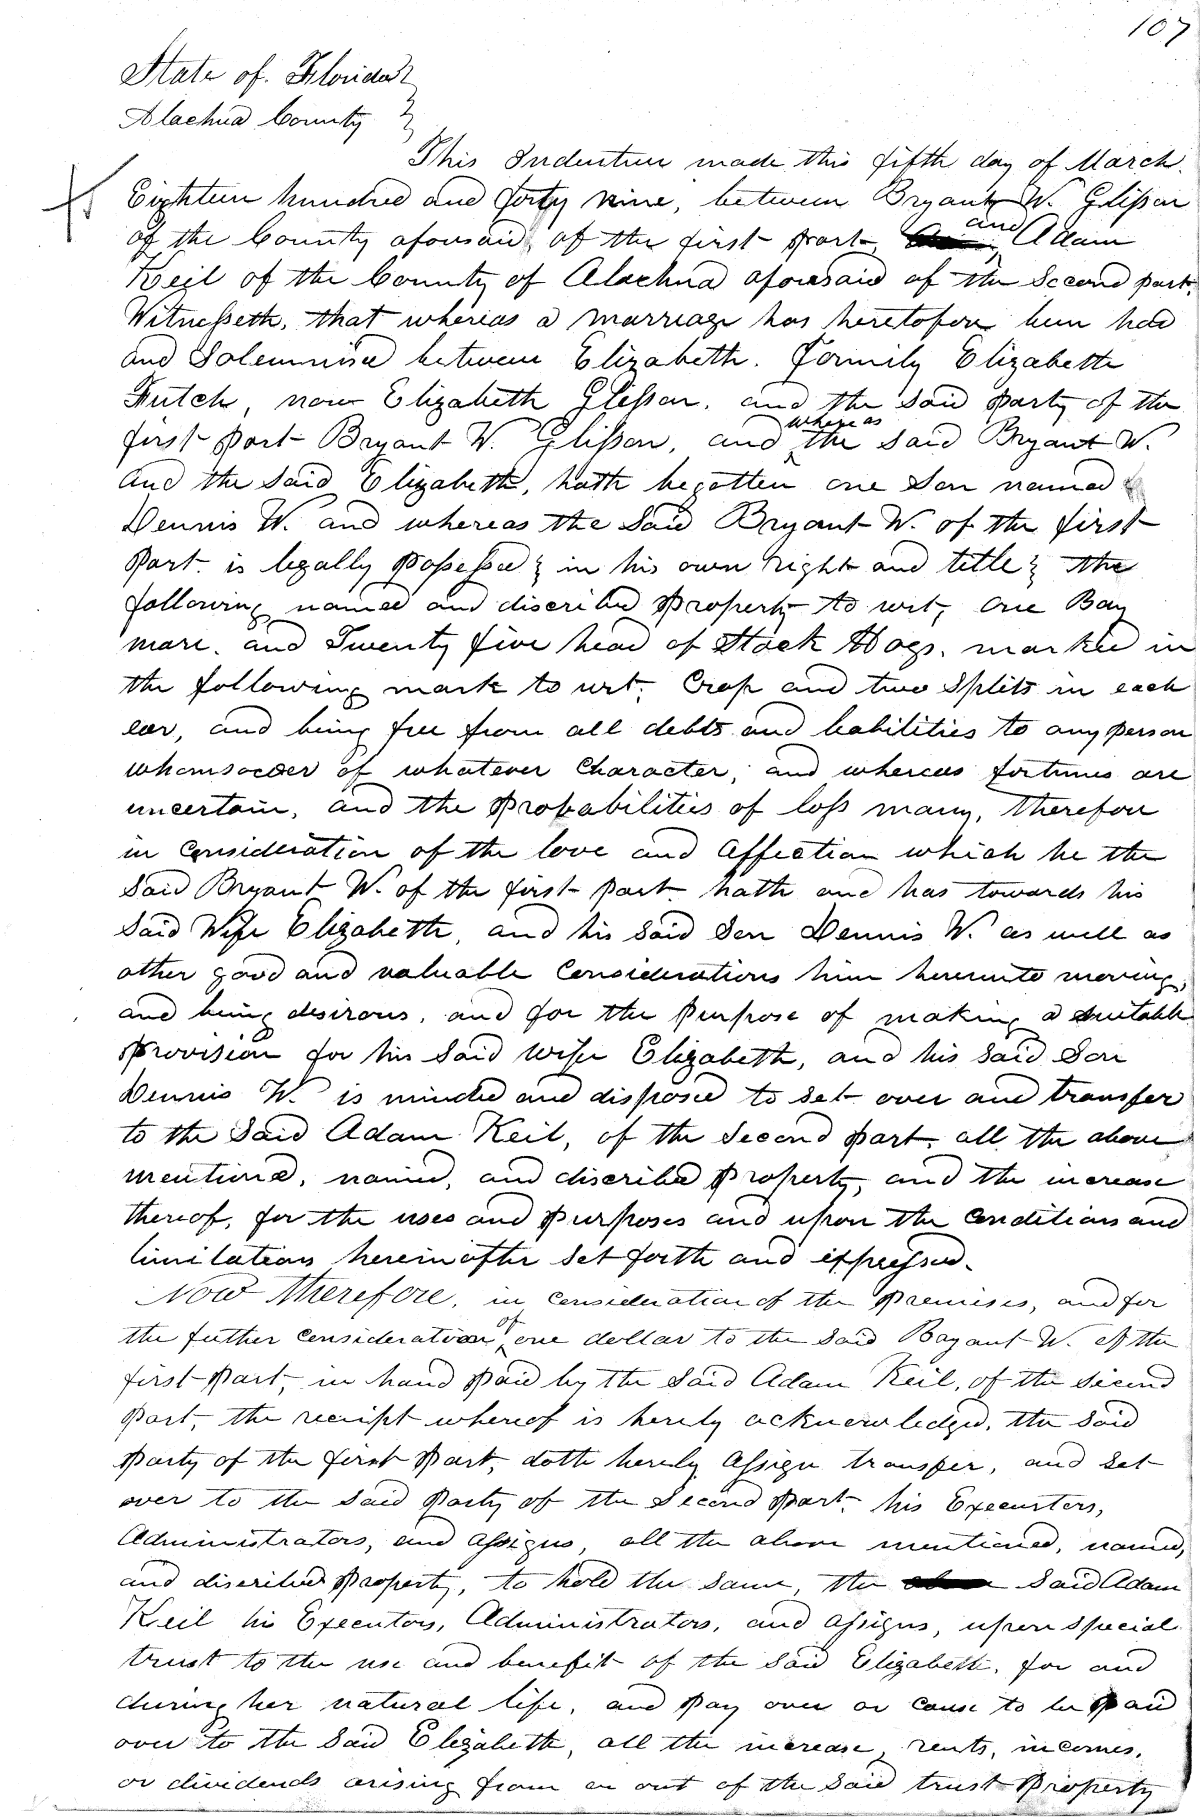 107
State of. Florida
Alachua County
This Indenture made this fifth day of March.
Eighteen hundred and forty nine, between Bryant W. Glisson
of the County aforesaid, of the first part, and Adam
Keil of the County of Alachua aforesaid of the Second part,
Witnesseth, that whereas a marriage has heretofore been had
and Solemnised between Elizabeth. formily Elizabeth
Futch, now Elizabeth Glisson, and the said party of the
first part Bryant W. Glisson, and where as the said Bryant W.
and the said Elizabeth, hath begotten one Son named
Dennis W. and whereas the Said Bryant W. of the first
part. is legally possessed; in his own right and title; the
following named and discribed property to wit, One Bay
mare. and Twenty five head of Stock Hogs. marked in
the following mark to wit; Crop and two Splits in each
ear, and being free from all debts and liabilities to any person
whomsoever of whatever Character, and whereas fortunes are
uncertain, and the probabilities of loss many, therefore
in consideration of the love and affection which he the
Said Bryant W. of the first part. hath and has towards his
Said Wife Elizabeth, and his said Son Dennis W. as well as
other good and valuable Considerations him hereunto moving,
and being desirous, and for the purpose of making a suitable
provision for his Said wife Elizabeth, and his said Son
Dennis W. is minded and disposed to set over and transfer
to the Said Adam Keil, of the second part, all the above
mentioned, named, and discribed property, and the increase
thereof, for the uses and purposes and upon the Conditions and
limitations hereinafter set forth and expressed.
Now therefore, in consideration of the premises, and for
the futher consideration of one dollar to the said Bryant W. of the
first part, in hand paid by the said Adam Keil, of the second
part, the receipt whereof is hereby acknowledged, the said
party of the first part, doth hereby assign transfer, and set
over to the said party of the Second part, his Executors,
Administrators, and assigns, all the above mentioned, named,
and discribed property, to hold the same, the said Adam
Keil his Executors, Administrators, and assigns, upon special
trust to the use and benefit of the said Elizabeth, for and
during her natural life, and pay over or cause to be paid
over to the said Elizabeth, all the increase, rents, incomes,
or dividends arising from or out of the said trust property